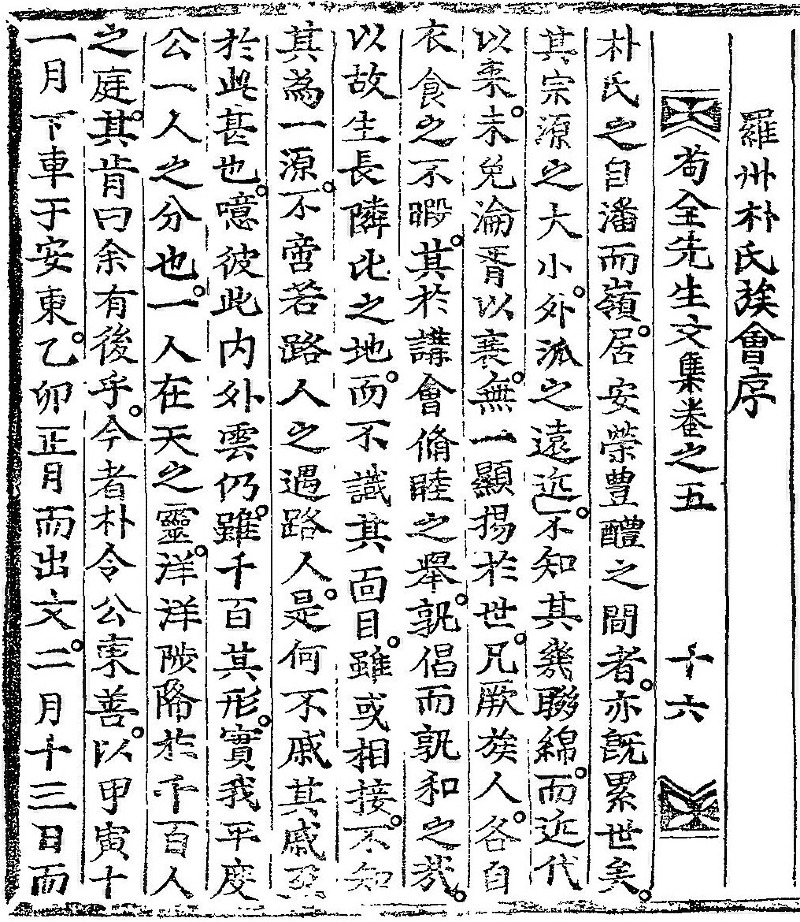 羅州朴氏族會序
苟全先生文集卷之五 十六
朴氏之自潘而嶺居安榮豊醴之間者亦旣累世矣
其宗源之大小外派之遠近不知其幾聯綿而近代
以來未免淪胥以衰無一顯揚於世凡厥族人各自
衣食之不暇其於講會脩睦之擧孰倡而孰和之哉
以故生長隣比之地而不識其面目雖或相接不知
其為一源不啻若路人之遇路人是何不戚其戚至
於此甚也噫彼此內外雲仍雖千百其形實我平度
公一人之分也一人在天之靈洋洋陟降於千百人
之庭其肯曰余有後乎今者朴令公東善以甲寅十
一月下車于安東乙卯正月而出文二月十三日而